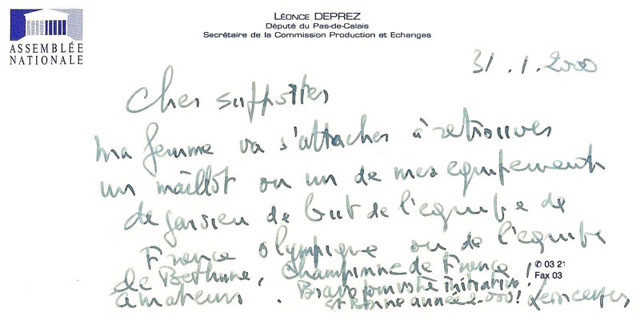 LÉONCE DEPREZ
Député du Pas-de-Calais
Secrétaire de la Commission Production et Echanges
ASSEMBLÉE
NATIONALE
31.1.2000
Cher supporter
ma femme va s'attacher à retrouver
un maillot ou un de mes equipements
de gardien de but de l'equipe de
France olympique ou de l'equipe
de Bethune, Championne de France
amateurs. Bravo pour votre initiative!
et bonne année 2000!
✆ 03 21
Fax 03